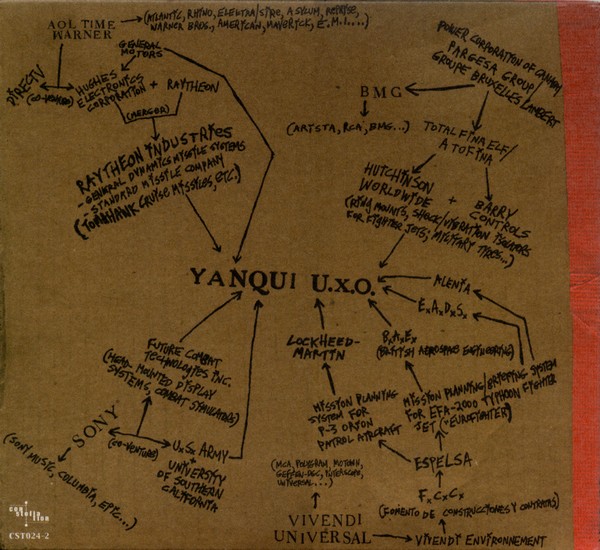 AOL TIME
WARNER
(ATLANTIC, RHINO, ELEKTRA/SIRE, ASYLUM, REPRISE,
WARNER BROS., AMERICAN, MAVERICK, E.M.I....)
GENERAL
MOTORS
DIRECTV
(CO-VENTURE)
HUGHES
ELECTRONICS
CORPORATION
+
RAYTHEON
(MERGER)
RAYTHEON INDUSTRIES
- GENERAL DYNAMICS MISSILE SYSTEMS
- STANDARD MISSILE COMPANY
(TOMAHAWK CRUISE MISSILES, ETC.)
POWER CORPORATION OF CANADA/
PARGESA GROUP/
GROUPE BRUXELLES LAMBERT
BMG
(ARISTA, RCA, BMG...)
TOTALFINAELF/
ATOFINA
HUTCHINSON
WORLDWIDE
+
BARRY
CONTROLS
(RING MOUNTS, SHOCK/VIBRATION ISOLATORS
FOR FIGHTER JETS; MILITARY TIRES...)
YANQUI U.X.O.
ALENIA
E.A.D.S.
LOCKHEED-
MARTIN
B.A.E.
(BRITISH AEROSPACE ENGINEERING)
FUTURE COMBAT
TECHNOLOGIES INC.
(HEAD MOUNTED DISPLAY
SYSTEMS, COMBAT SIMULATORS)
SONY
(CO-VENTURE)
U.S. ARMY
UNIVERSITY
OF SOUTHERN
CALIFORNIA
(SONY MUSIC, COLUMBIA, EPIC...)
MISSION PLANNING
SYSTEM FOR
P-3 ORION
PATROL AIRCRAFT
MISSION PLANNING/BRIEFING SYSTEM
FOR EFA-2000 TYPHOON FIGHTER
JET ("EUROFIGHTER")
ESPELSA
F.C.C.
(FOMENTO DE CONSTRUCCIONES Y CONTRATAS)
(MCA, POLYGRAM, MOTOWN,
GEFFEN-DGC, INTERSCOPE,
UNIVERSAL...)
VIVENDI
UNIVERSAL
VIVENDI ENVIRONNEMENT
con
stella
tion
CST024-2